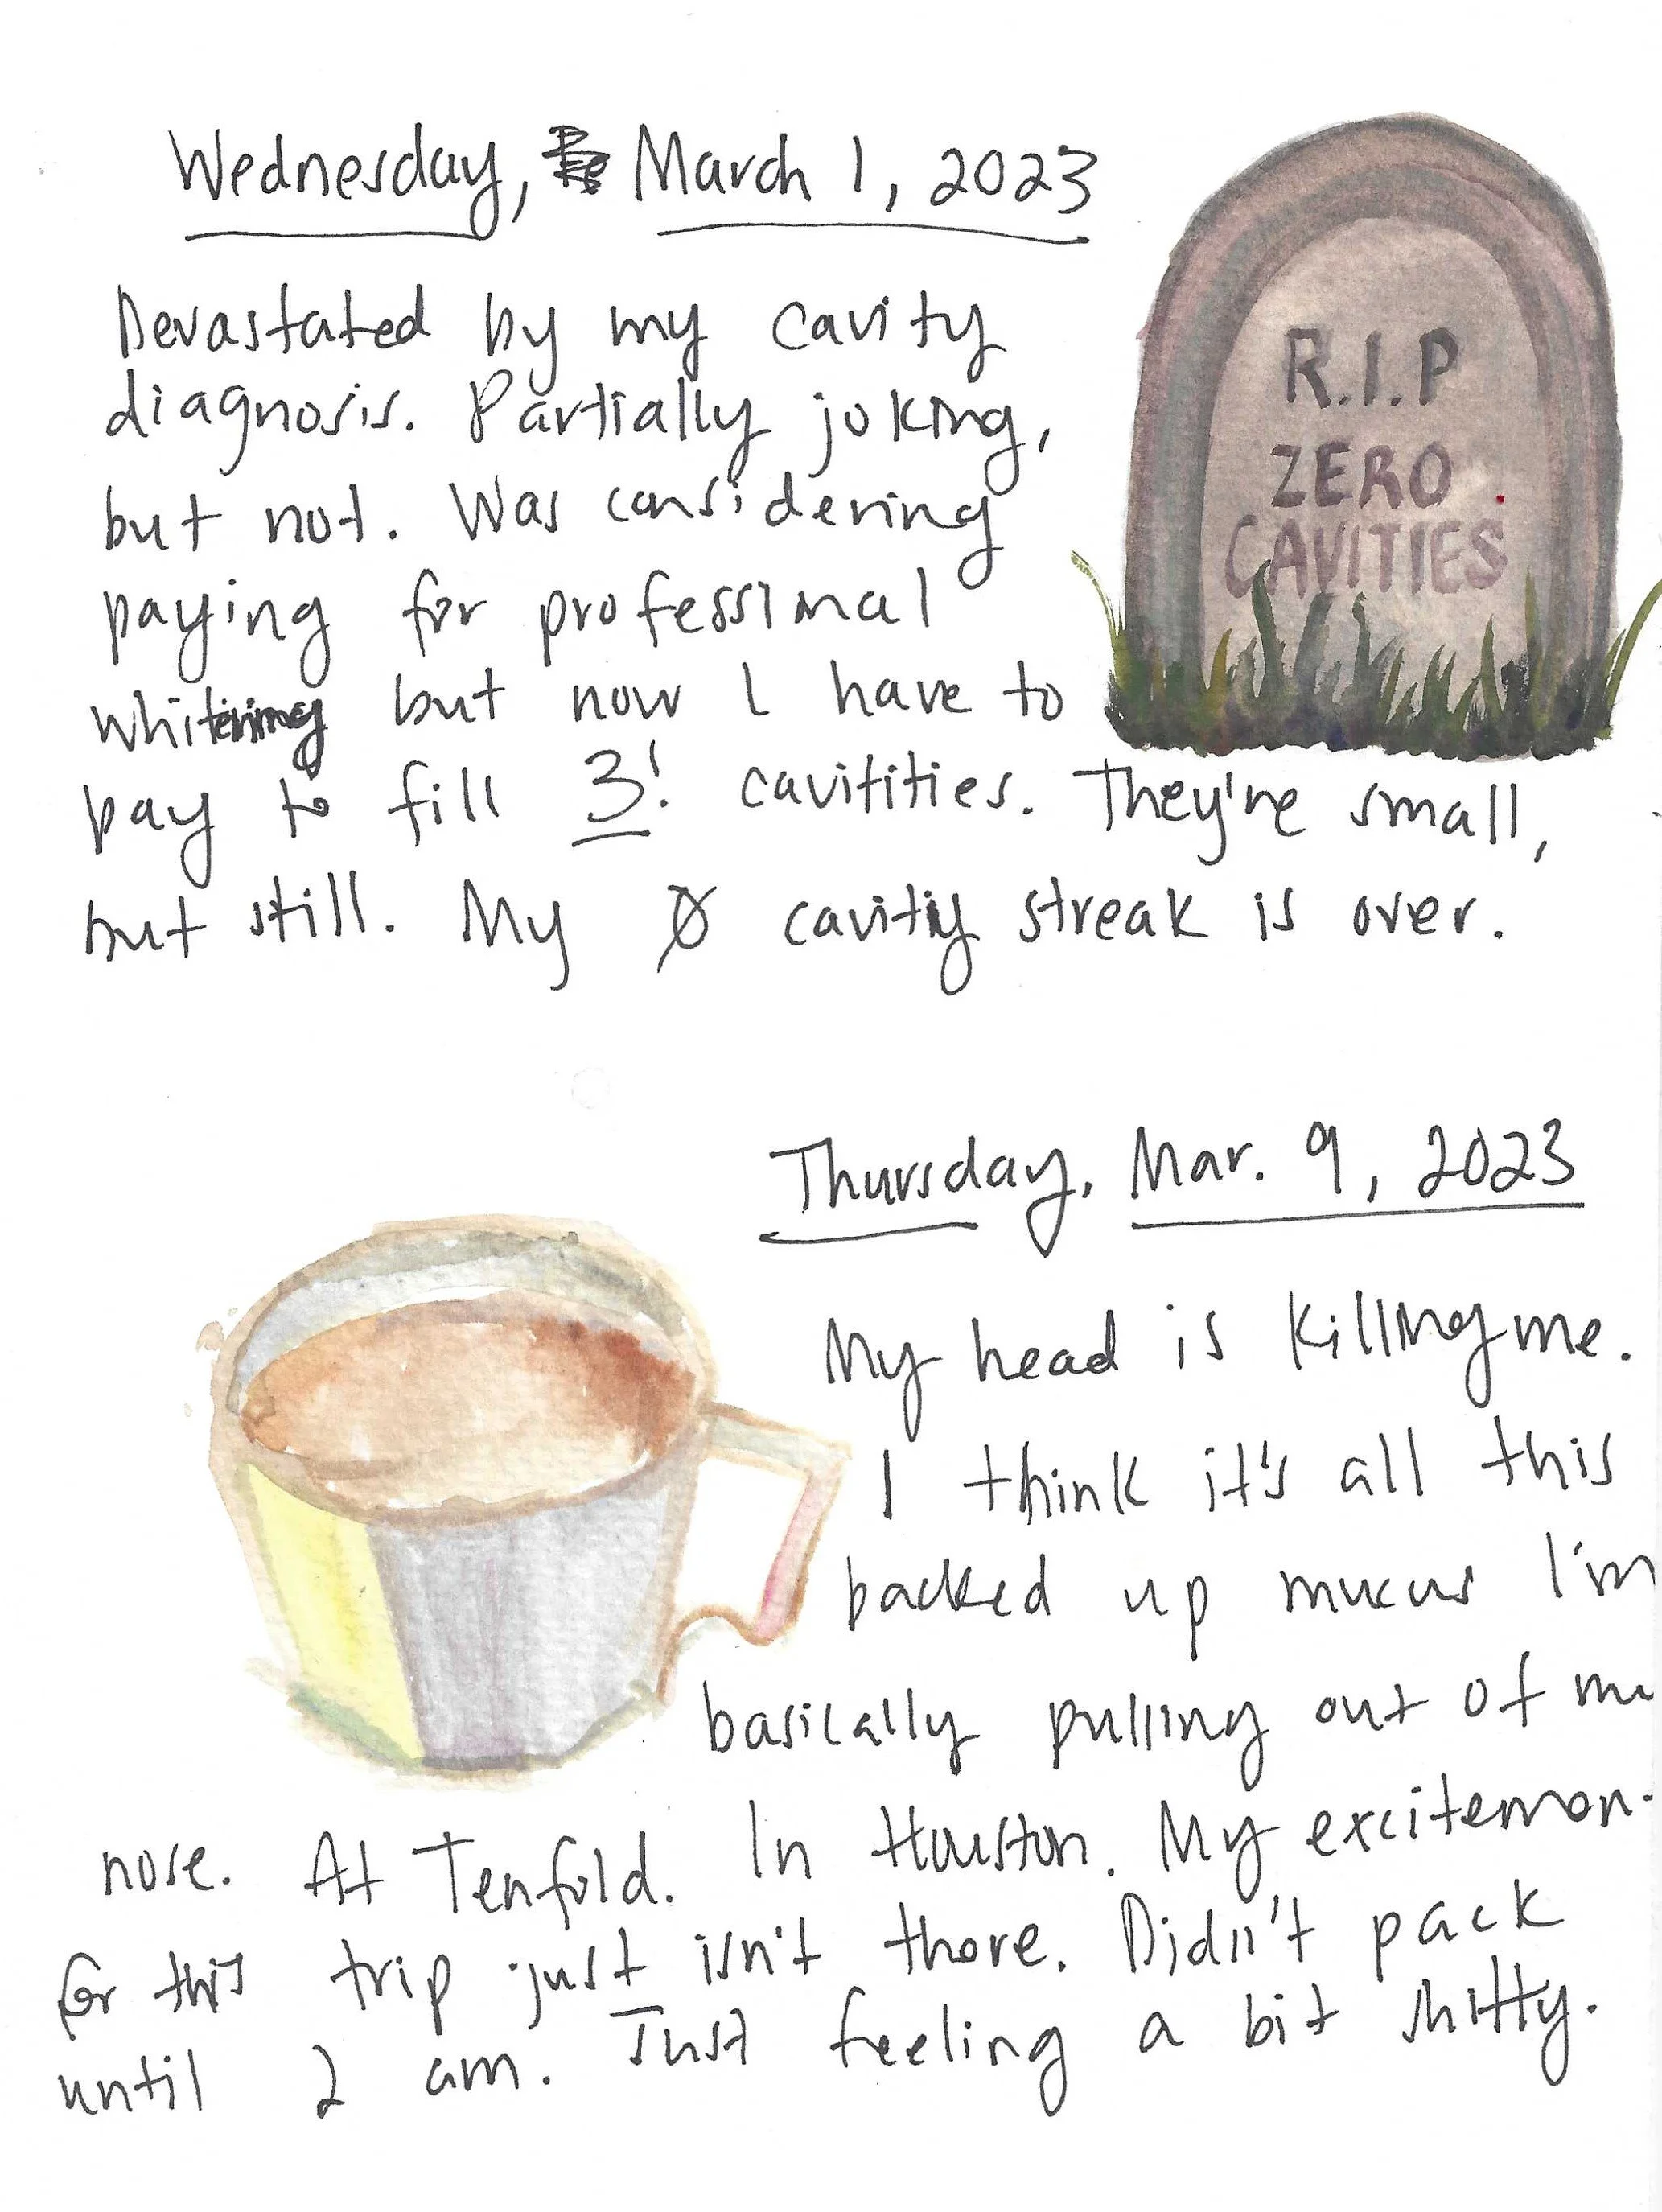 Wednesday, March 1, 2023
Devastated by my cavity
diagnosis. Partially joking,
but not. Was considering
paying for professional
whitening but now I have to
pay to fill 3! cavitities. They're small,
but still. My Ø cavity streak is over.
R.I.P
ZERO
CAVITIES
Thursday, Mar. 9, 2023
My head is killing me.
I think it's all this
backed up mucus I'm
basically pulling out of my
nose. At Tenfold. In Houston. My excitemen-
for this trip just isn't there. Didn't pack
until 2 am. Just feeling a bit shitty.